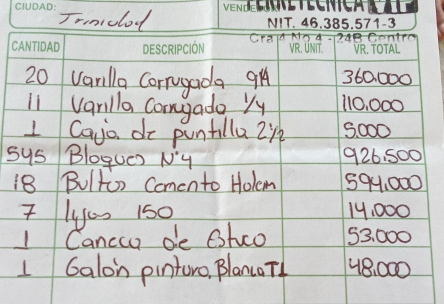 CIUDAD: Trinidad VENDE
NIT. 46.385.571-3
Cra 4 No 4 - 24B Centro
CANTIDAD DESCRIPCIÓN VR. UNIT. VR. TOTAL
20 Varilla Corrugada 360.000
11 Varilla Corrugada 1/4 110.000
1 Caja de puntilla 2 1/2 5.000
545 Bloques N°4 926.500
18 Bultos Cemento Holcim 594.000
7 lijas 150 14.000
1 Caneca de Estuco 53.000
1 Galón pintura. Blanca T1 48.000